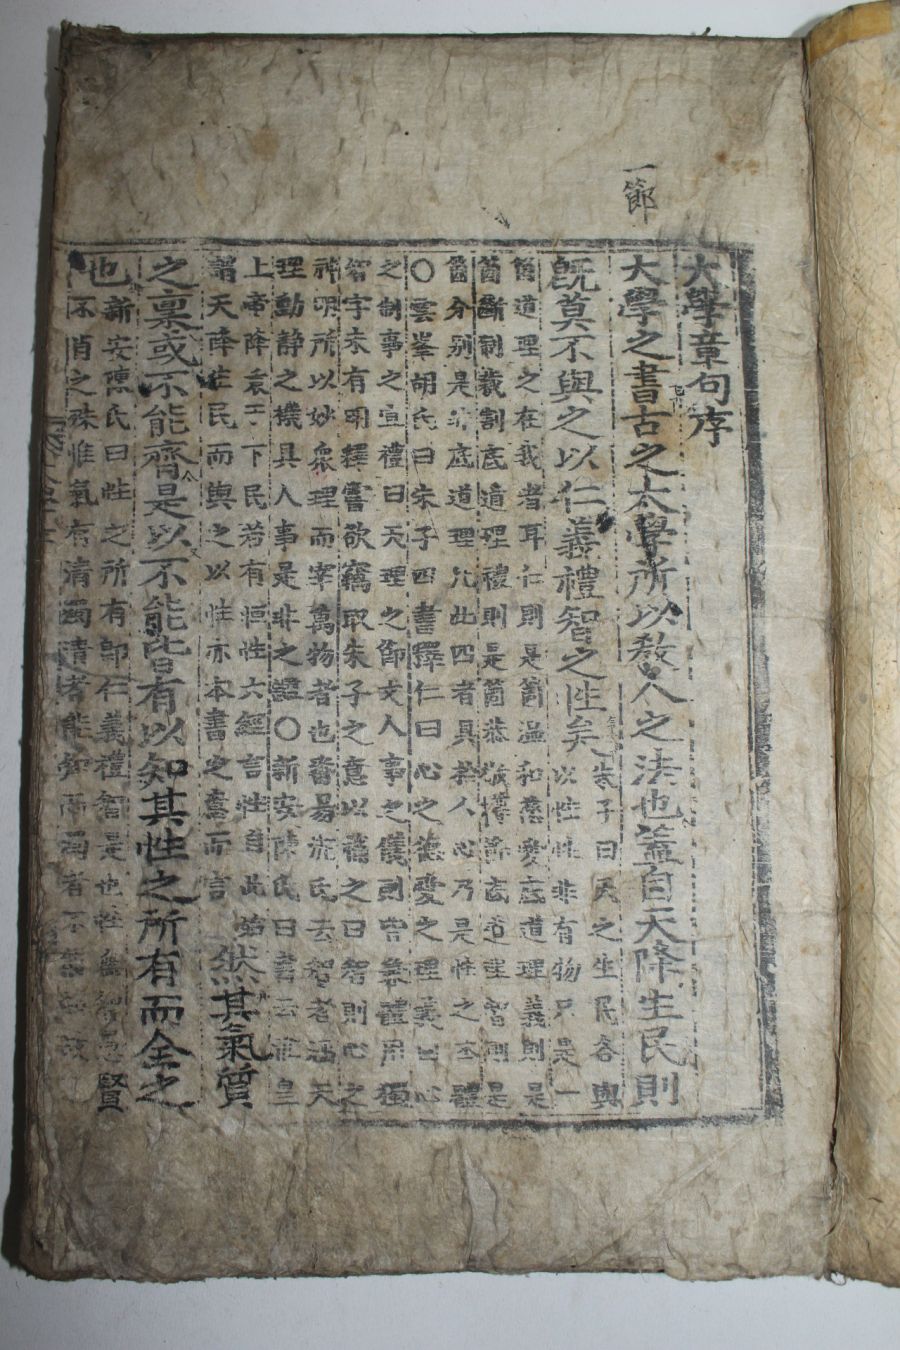 一節
大學章句序
大學之書古之大學所以敎人之法也蓋自天降生民則
旣莫不與之以仁義禮智之性矣
朱子曰天之生民各與
以性性非有物只是一
箇道理之在我者耳仁則是箇溫和慈愛底道理義則是
箇斷制裁割底道理禮則是箇恭敬撙節底道理智則是
箇分別是非底道理凡此四者具於人心乃是性之本體
○雲峯胡氏曰朱子四書釋仁曰心之德愛之理義曰心
之制事之宜禮曰天理之節文人事之儀則皆兼體用獨
智字未有明釋嘗欲竊取朱子之意以補之曰智則心之
神明所以妙衆理而宰萬物者也番易沈氏云智者涵天
理動靜之機具人事是非之鑑○新安陳氏曰書云惟皇
上帝降衷于下民若有恒性六經言性自此始
謂天降生民而與之以性亦本書之意而言
然其氣質
之稟或不能齊是以不能皆有以知其性之所有而全之
也
新安陳氏曰性之所有卽仁義禮智是也性無智愚賢
不肖之殊惟氣有淸濁淸者能知而濁者不能知